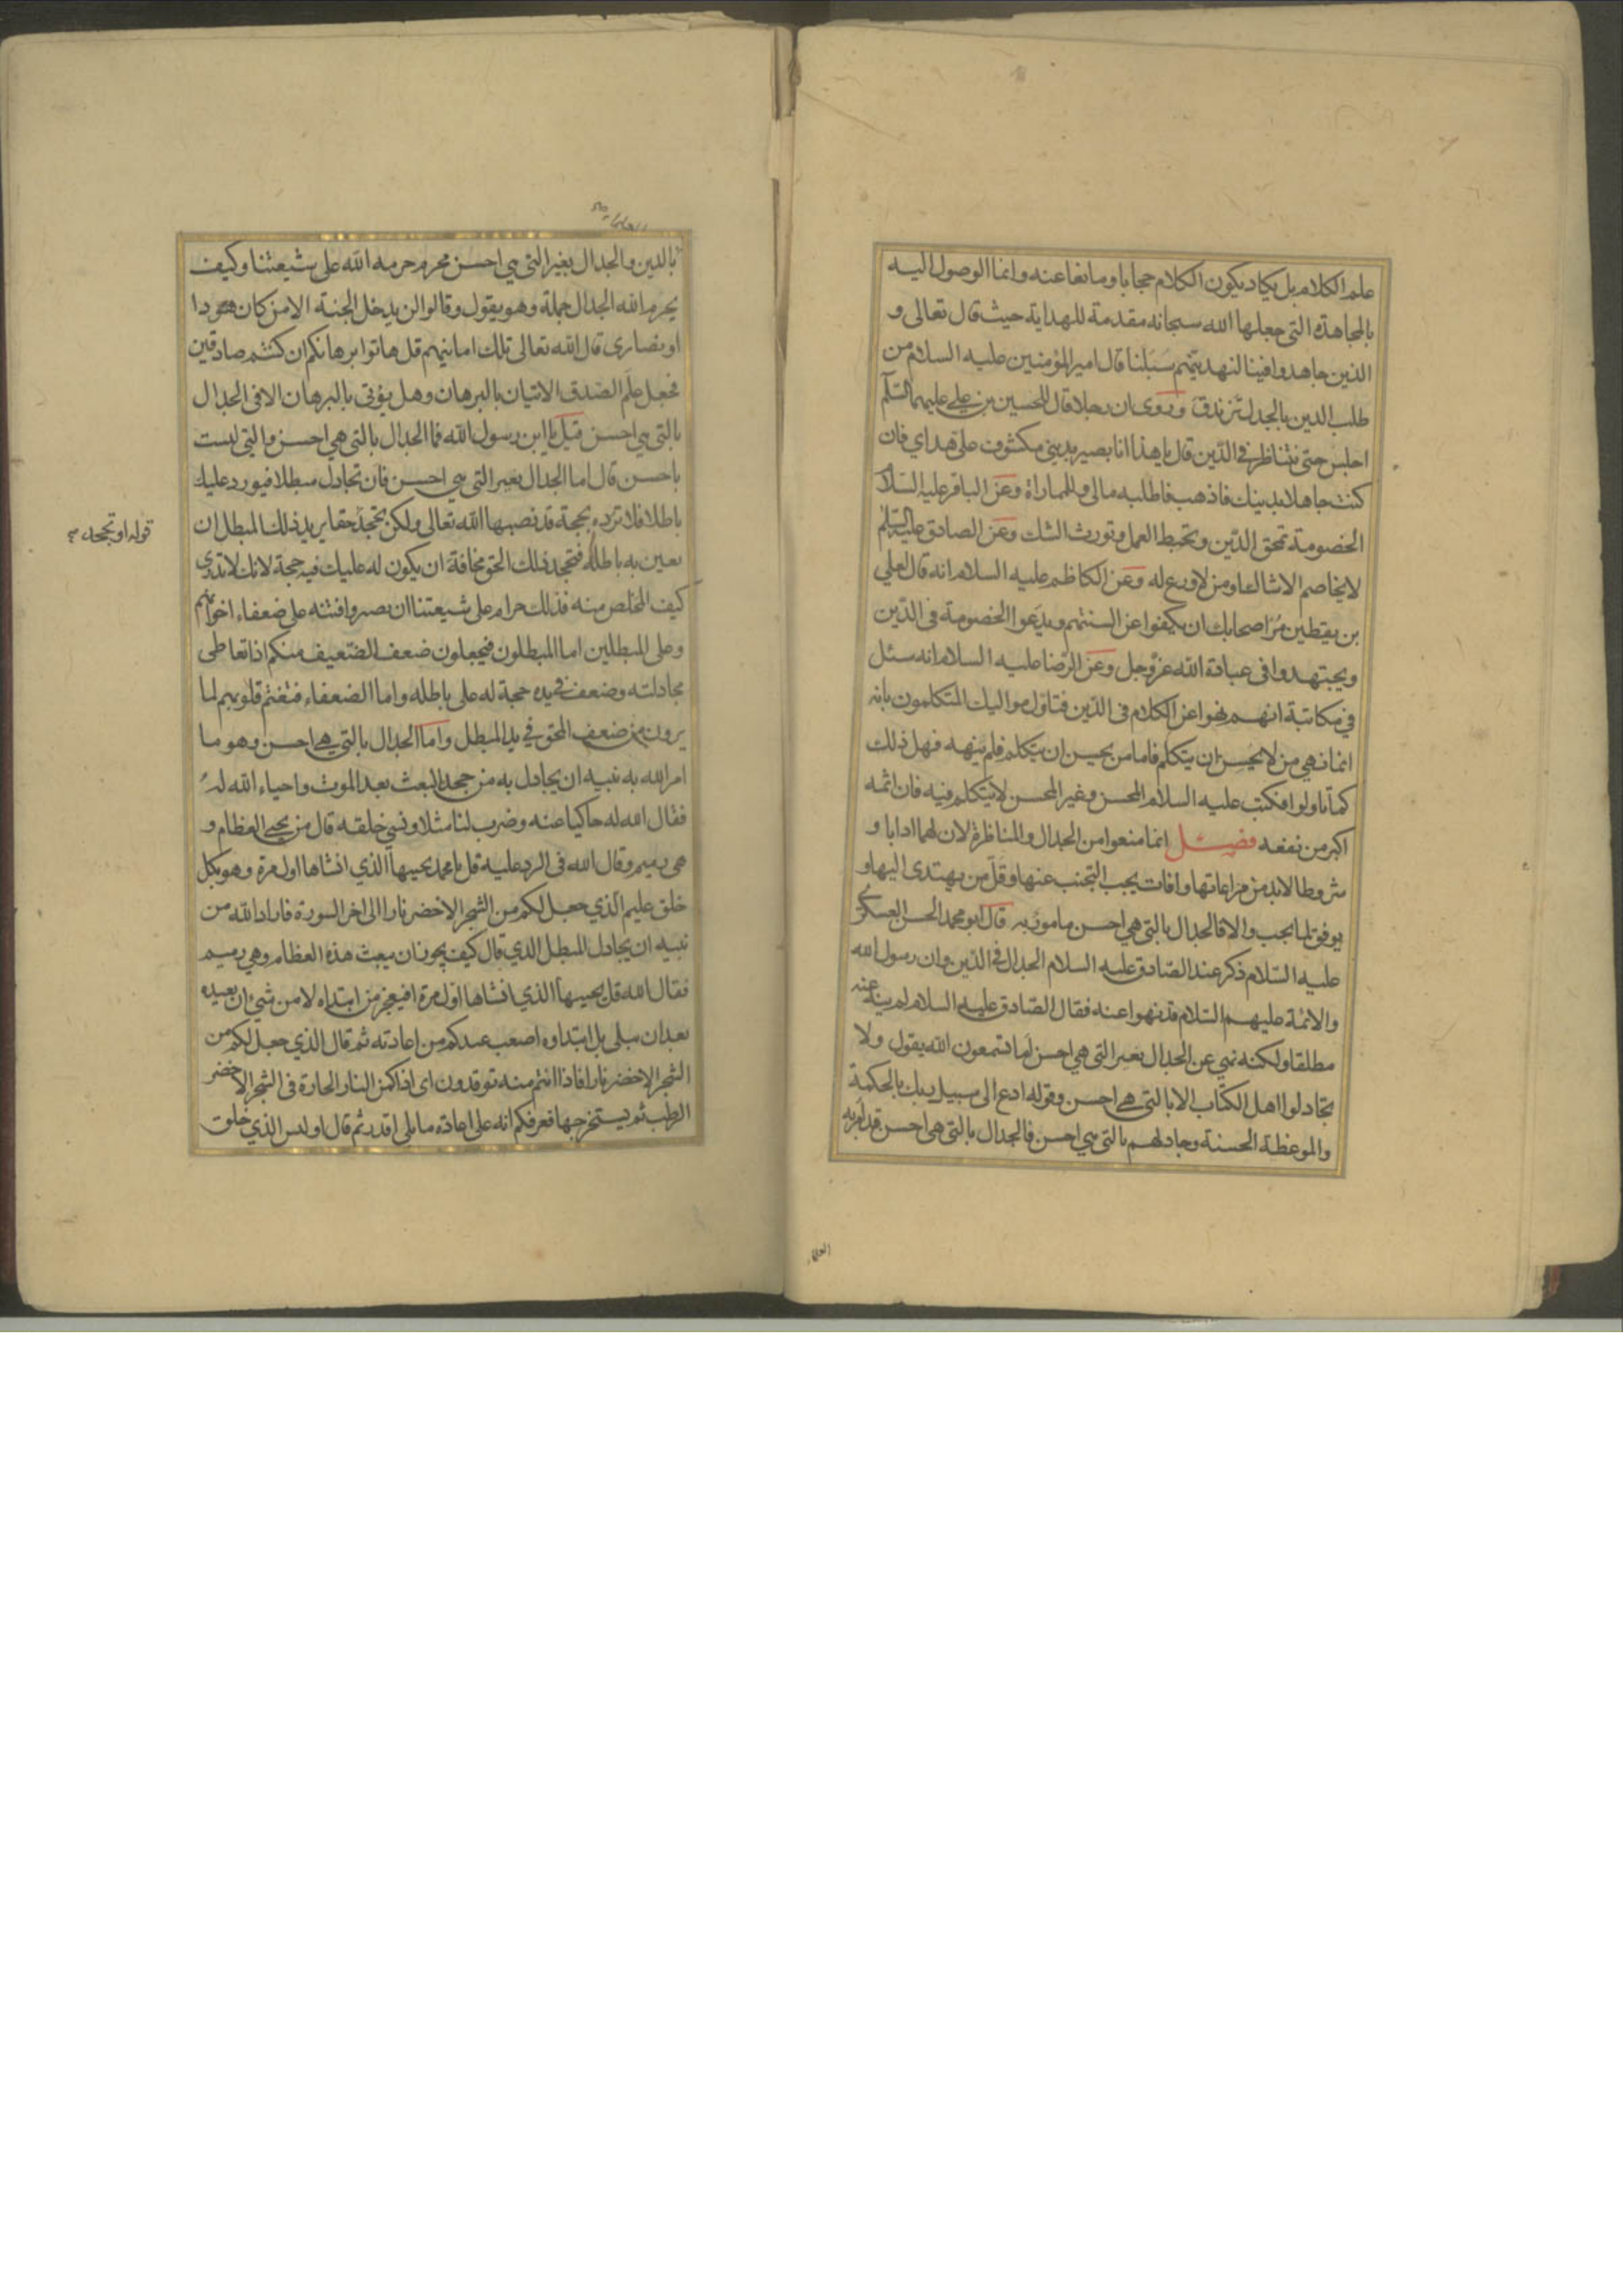 علم الكلام بل يكاد يكون الكلام حجابا ومانعا عنه وانما الوصول اليه
بالمجاهدة التى جعلها الله سبحانه مقدمة للهداية حيث قال تعالى و
الذين جاهدوا فينا لنهدينهم سبلنا قال امير المؤمنين عليه السلام من
طلب الدين بالجدل تزندق وروى ان رجلا قال للحسين بن على عليهما السلم
اجلس حتى نتناظر فى الدين قال يا هذا انا بصير بدينى مكشوف على هداى فان
كنت جاهلا بدينك فاذهب فاطلبه مالى وللمماراة وعن الباقر عليه السلام
الخصومة تمحق الدين وتحبط العمل وتورث الشك وعن الصادق عليه السلم
لا يخاصم الا شاك او من لا ورع له وعن الكاظم عليه السلام انه قال لعلي
بن يقطين مر اصحابك ان يكفوا عن السنتهم ويدعوا الخصومة فى الدين
ويجتهدوا فى عبادة الله عز وجل وعن الرضا عليه السلام انه سئل
في مكاتبة انهم نهوا عن الكلام فى الدين فتاول مواليك المتكلمون بانه
انما نهي من لا يحسن ان يتكلم فاما من يحسن ان يتكلم فلم ينهه فهل ذلك
كما تاولوا فكتب عليه السلام المحسن وغير المحسن لا يتكلم فيه فان اثمه
اكبر من نفعه فصل انما منعوا من الجدال والمناظرة لان لهما ادابا و
شروطا لابد من مراعاتها وافات يجب التجنب عنها وقل من يهتدى اليها و
يوفق لما يجب والا فالجدال بالتى هي احسن مامور به قال ابو محمد الحسن العسكري
عليه السلام ذكر عند الصادق عليه السلام الجدال فى الدين وان رسول الله
والائمة عليهم السلام قد نهوا عنه فقال الصادق عليه السلام لم ينه عنه
مطلقا ولكنه نهي عن الجدال بغير التى هي احسن اما تسمعون الله يقول ولا
تجادلوا اهل الكتاب الا بالتى هي احسن وقوله ادع الى سبيل ربك بالحكمة
والموعظة الحسنة وجادلهم بالتى هي احسن فالجدال بالتى هي احسن قد امر به
العلماء
العلماء
بالدين والجدال بغير التى هي احسن محرم حرمه الله على شيعتنا وكيف
يحرم الله الجدال جملة وهو يقول وقالوا لن يدخل الجنة الا من كان هودا
او نصارى قال الله تعالى تلك امانيهم قل هاتوا برهانكم ان كنتم صادقين
فجعل علم الصدق الاتيان بالبرهان وهل يؤتى بالبرهان الا فى الجدال
بالتى هي احسن قيل يا ابن رسول الله فما الجدال بالتى هي احسن والتى ليست
باحسن قال اما الجدال بغير التى هي احسن فان تجادل مبطلا فيورد عليك
باطلا فلا ترده بحجة قد نصبها الله تعالى ولكن تجحد حقا يريد ذلك المبطل ان
يعين به باطله فتجحد ذلك الحق مخافة ان يكون له عليك فيه حجة لانك لا تدرى
كيف المخلص منه فذلك حرام على شيعتنا ان يصيروا فتنه على ضعفاء اخوانهم
وعلى المبطلين اما المبطلون فيجعلون ضعف الضعيف منكم اذا تعاطى
مجادلته وضعف فى يده حجة له على باطله واما الضعفاء فتغتم قلوبهم لما
يرون من ضعف المحق في يد المبطل واما الجدال بالتى هي احسن وهو ما
امر الله به نبيه ان يجادل به من جحد البعث بعد الموت واحياء الله له
فقال الله له حاكيا عنه وضرب لنا مثلا ونسي خلقه قال من يحيى العظام و
هى رميم وقال الله فى الرد عليه قل يا محمد يحييها الذي انشاها اول مرة وهو بكل
خلق عليم الذي جعل لكم من الشجر الاخضر نارا الى اخر السورة فاراد الله من
نبيه ان يجادل المبطل الذي قال كيف يجوز ان يبعث هذه العظام وهي رميم
فقال الله قل يحييها الذي انشاها اول مرة افيعجز من ابتداه لا من شيئ ان يعيده
بعد ان يبلى بل ابتداوه اصعب عندكم من اعادته ثم قال الذي جعل لكم من
الشجر الاخضر نارا فاذا انتم منه توقدون اى اذا كمن النار الحارة فى الشجر الاخضر
الرطب ثم يستخرجها فعرفكم انه على اعادة ما بلى اقدر ثم قال اوليس الذي خلق
قوله او تجحد